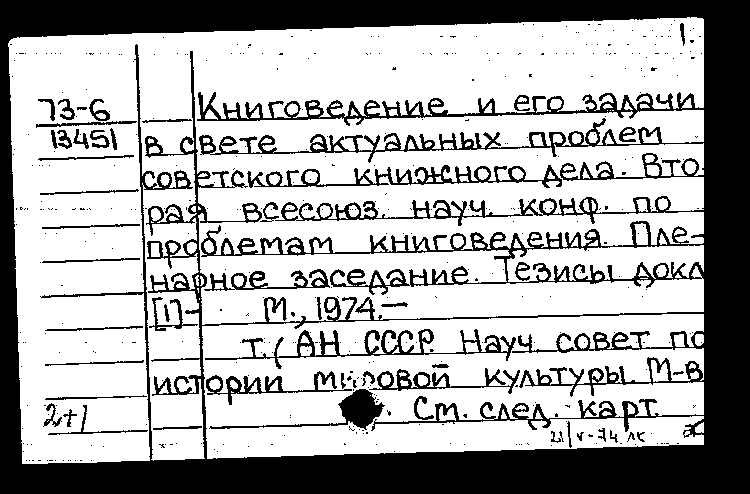 1.
73-6
13451
Книговедение и его задачи
в свете актуальных проблем
советского книжного дела. Вто-
рая всесоюз. науч. конф. по
проблемам книговедения. Пле-
нарное заседание. Тезисы докл
[1]- М., 1974.—
т. (АН СССР. Науч. совет по
истории мировой культуры. М-в
2+1
См. след. карт.